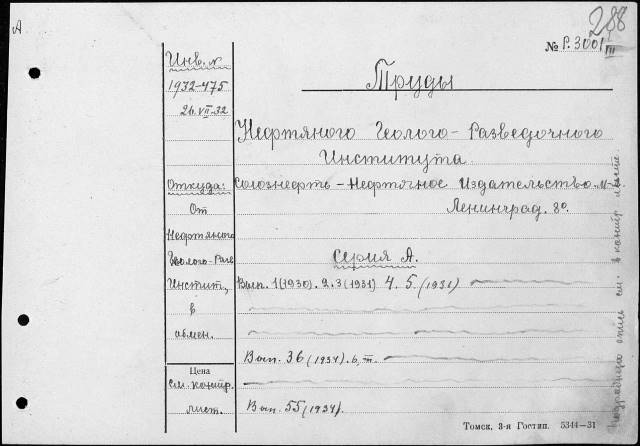 А
288
№ Р.3001
III
Инв. №
1932-475
26.VII.32
Труды
Нефтяного Геолого-Разведочного
Института.
Откуда:
Союзнефть – Нефтяное Издательство. М-
От
Ленинград. 8º.
Нефтяного
Геолого-Разв
Серия А.
Инстит,
Вып. 1(1930). 2. 3(1931) 4. 5. (1931)
в
обмен.
Вып. 36 (1934). 6,
Цена
см. контр.
лист.
Вып. 55 (1934).
Томск, 3-я Гостип. 5344—31
опись см. в контр. листе.